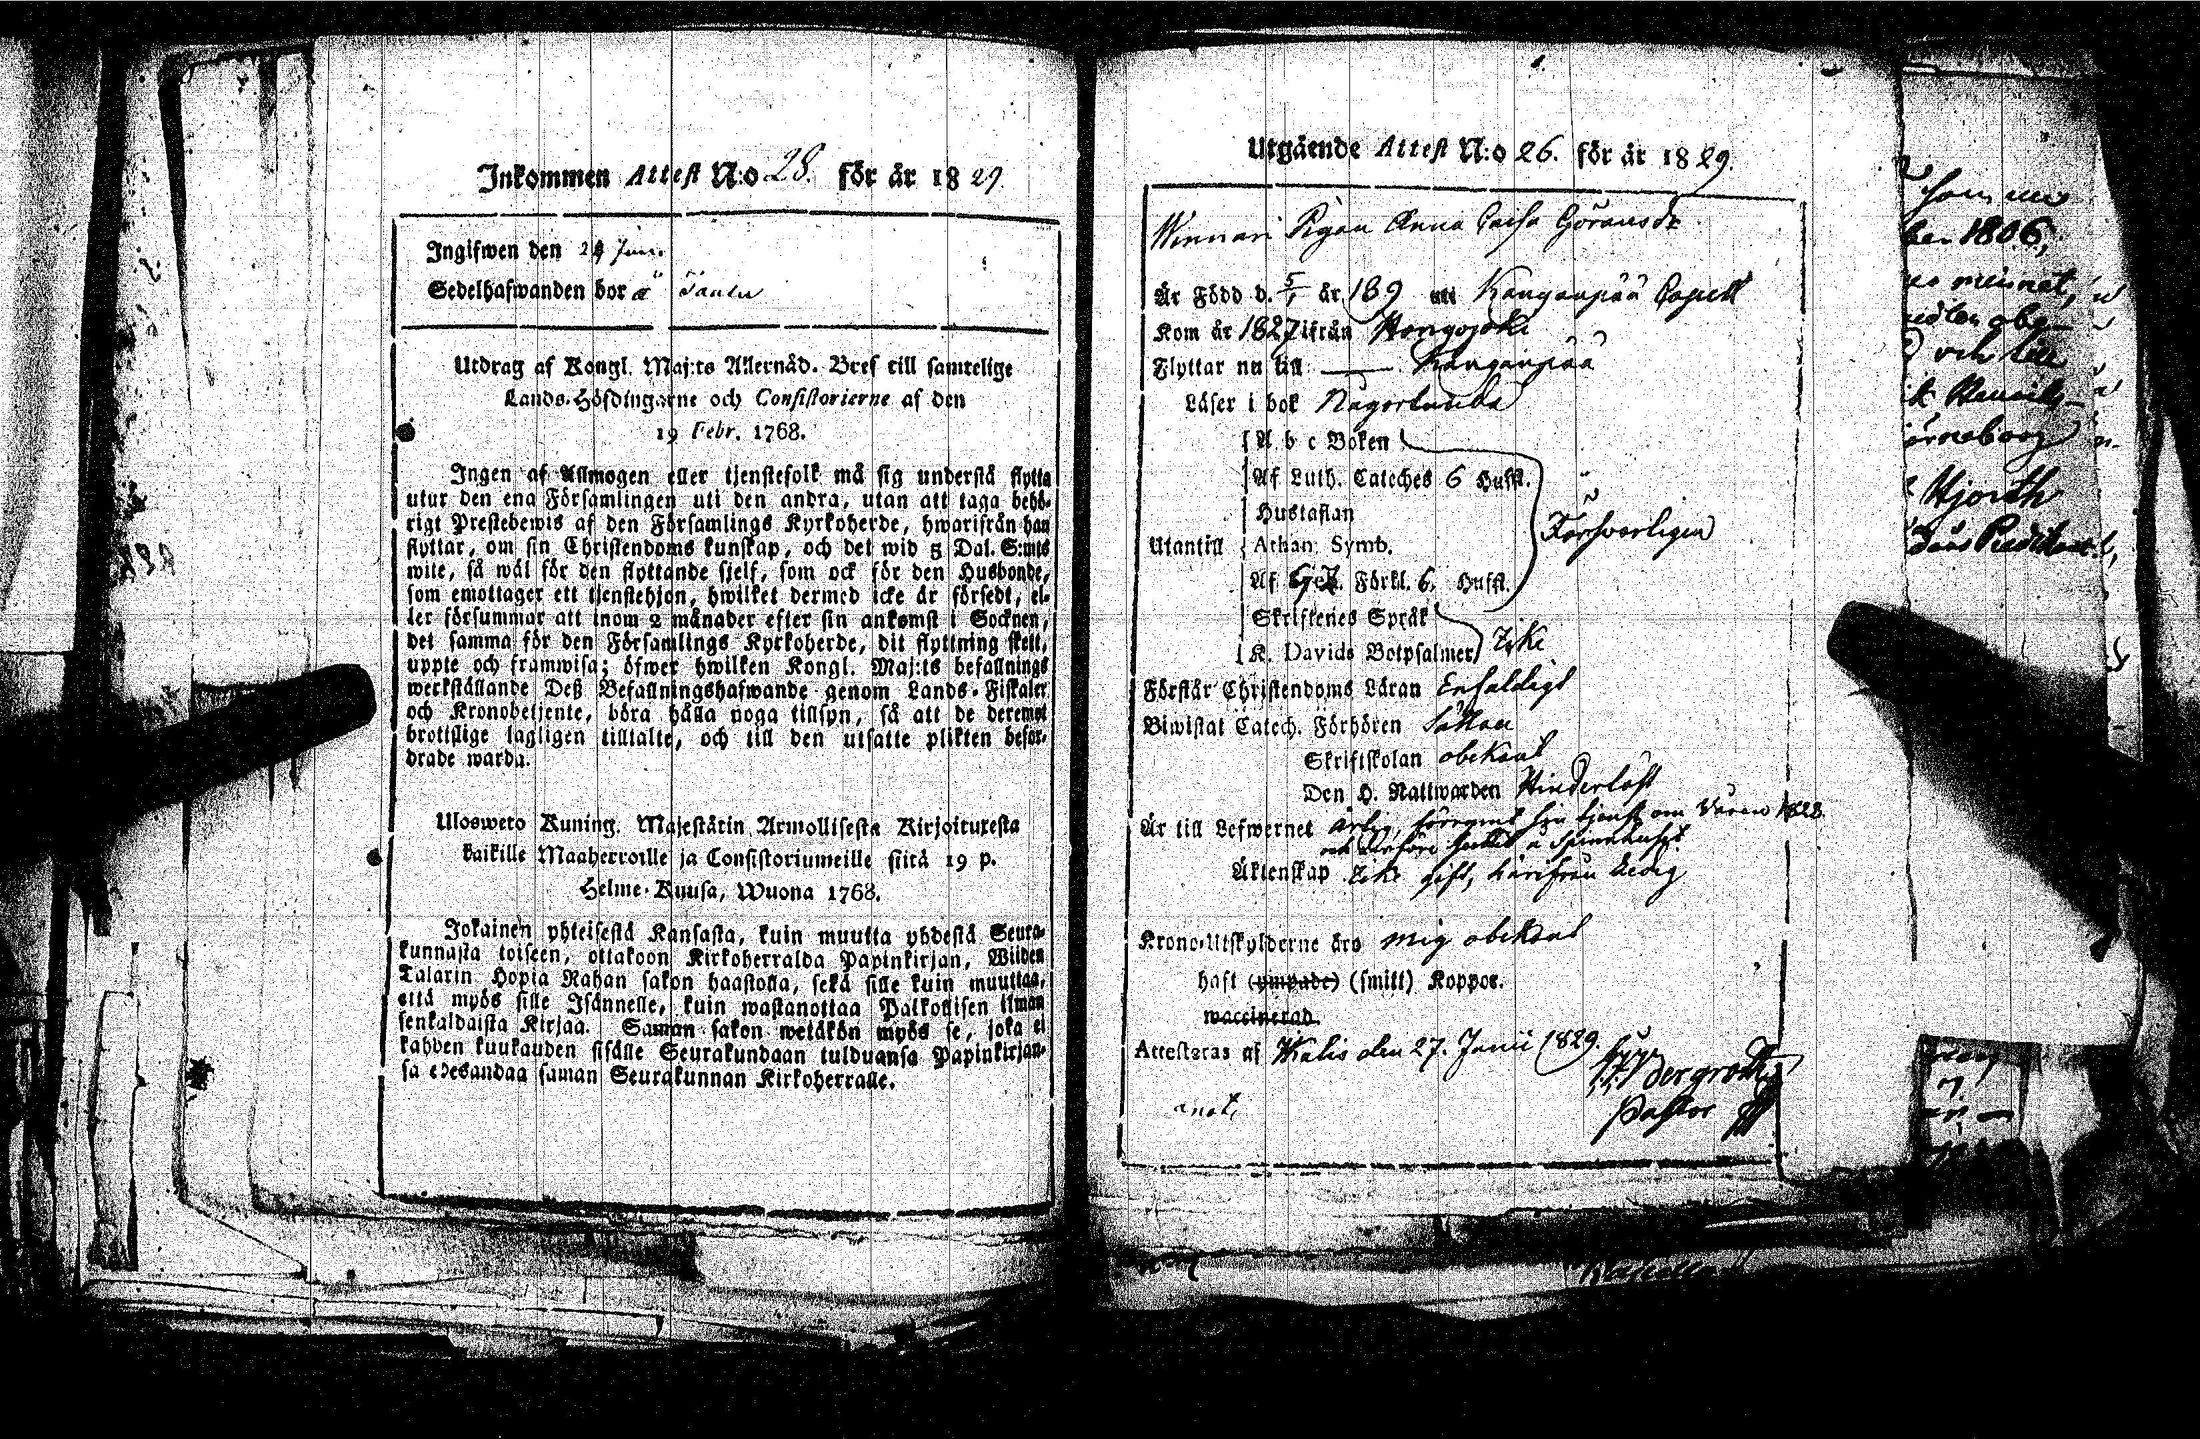 Inkommen Attest N:o 28. för år 1829
Ingifwen den 29 Jun.
Sedelhafwanden bor å
Utdrag af Kongl. Maj:ts Allernåd. Bref till samtelige
Lands-Höfdingarne och Consistorierne af den
19 Febr. 1768.
Ingen af Allmogen eller tjenstefolk må sig understå flytta
utur den ena Församlingen uti den andra, utan att taga behö-
rigt Prestebewis af den Församlings Kyrkoherde, hwarifrån han
flyttar, om sin Christendoms kunskap, och det wid 5 Dal. S:mts
wite, så wäl för den flyttande sjelf, som ock för den Husbonde,
som emottager ett tjenstehjon, hwilket dermed icke är försedt, el-
ler försummar att inom 2 månader efter sin ankomst i Socknen,
det samma för den Församlings Kyrkoherde, dit flyttning skett,
uppte och framwisa; öfwer hwilken Kongl. Maj:ts befallnings
werkställande Deß Befallningshafwande genom Lands-Fiskaler
och Kronobetjente, böra hålla noga tillsyn, så att de deremot
brottslige lagligen tilltalte, och till den utsatte plikten befor-
drade warda.
Ulosweto Kuning. Majestätin Armollisesta Kirjoituxesta
kaikille Maaherroille ja Consistoriumeille siitä 19 p.
Helme-Kuusa, Wuona 1768.
Jokainen yhteisestä Kansasta, kuin muutta yhdestä Seura-
kunnasta toiseen, ottakoon Kirkoherralda Papinkirjan, Wiiden
Talarin Hopia Rahan sakon haastolla, sekä sille kuin muuttaa,
että myös sille Isännelle, kuin wastanottaa Palkollisen ilman
senkaldaista Kirjaa. Saman sakon wetäkön myös se, joka ei
kahden kuukauden sisälle Seurakundaan tulduansa Papinkirjan-
sa edesandaa saman Seurakunnan Kirkoherralle.
Utgående Attest N:o 26. för år 1829.
Pigan Anna Caisa Göransdr
Är Född d. 5/1 år 189 uti Kanganpää Capell
Kom år 1827 ifrån Hongojoki
Flyttar nu till —— Kanganpää
Läser i bok Någorlunda
A b c Boken
Af Luth. Cateches 6 Hufst.
Hustaflan
Utantill Athan. Symb. Försvarligen
Af Förkl. 6. Hufst.
Skriftenes Språk
K. Davids Botpsalmer Icke
Förstår Christendoms Läran Enfaldigt
Biwistat Catech. Förhören Sällan
Skriftskolan obekant
Den H. Nattwarden Hinderlöst
Är till Lefwernet sin tjenst om Våren 1828
och derföre å Spinnhuset
Äktenskap Icke gift, härifrån ledig
Krono-Utskylderne äro mig obekant
haft (ympade) (smitt) Koppor.
waccinerad.
Attesteras af Kalis den 27. Junii 1829.
Bergroth
Pastor
som nu
ber 1806,
och till
Hjorth